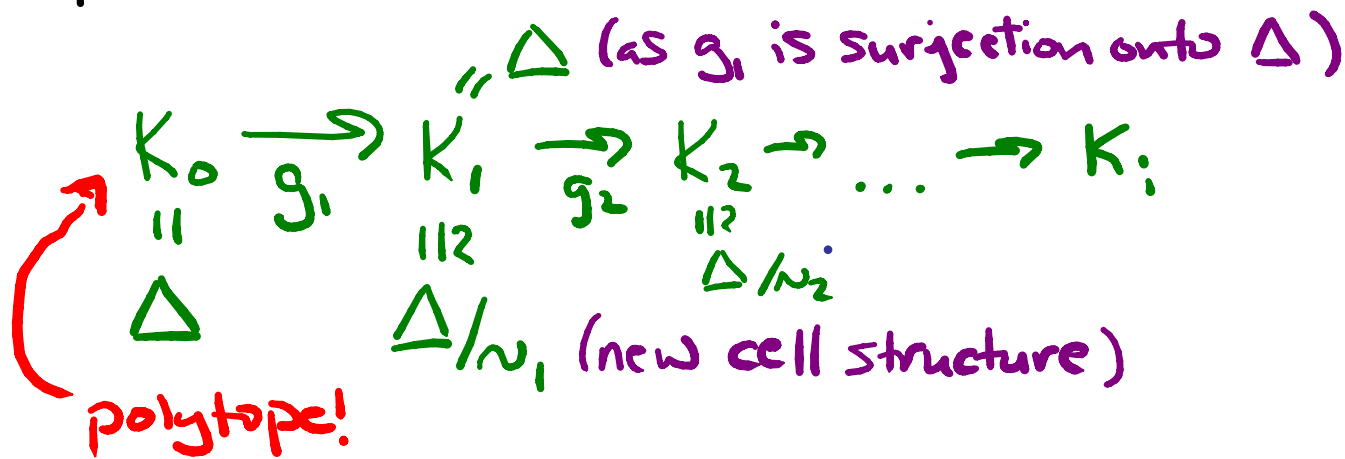 Δ (as g₁ is surjection onto Δ)
K₀ → K₁ → K₂ → ... → Kᵢ
g₁ g₂
= ≅ ≅
Δ Δ/~₁ Δ/~₂
(new cell structure)
polytope!